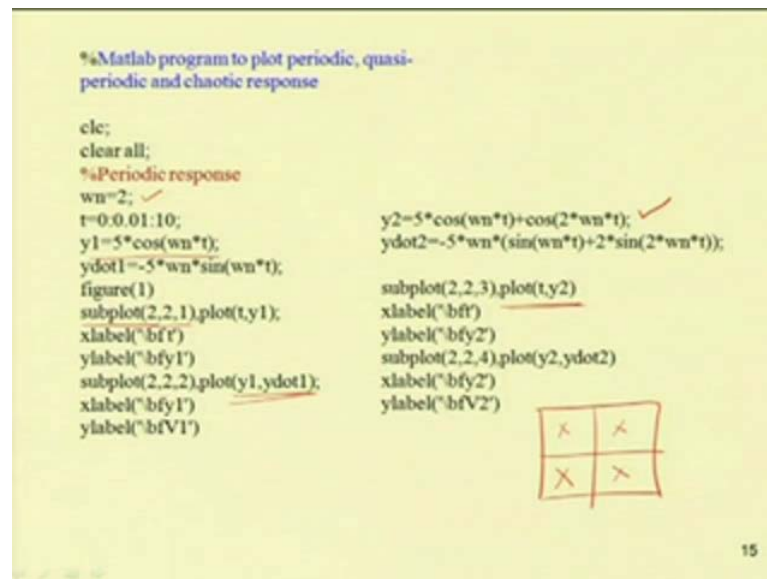 %Matlab program to plot periodic, quasi-
periodic and chaotic response
clc;
clear all;
%Periodic response
wn=2;
t=0:0.01:10;
y1=5*cos(wn*t);
ydot1=-5*wn*sin(wn*t);
figure(1)
subplot(2,2,1),plot(t,y1);
xlabel('\bft')
ylabel('\bfy1')
subplot(2,2,2),plot(y1,ydot1);
xlabel('\bfy1')
ylabel('\bfV1')
y2=5*cos(wn*t)+cos(2*wn*t);
ydot2=-5*wn*(sin(wn*t)+2*sin(2*wn*t));
subplot(2,2,3),plot(t,y2)
xlabel('\bft')
ylabel('\bfy2')
subplot(2,2,4),plot(y2,ydot2)
xlabel('\bfy2')
ylabel('\bfV2')
x x
x x
15